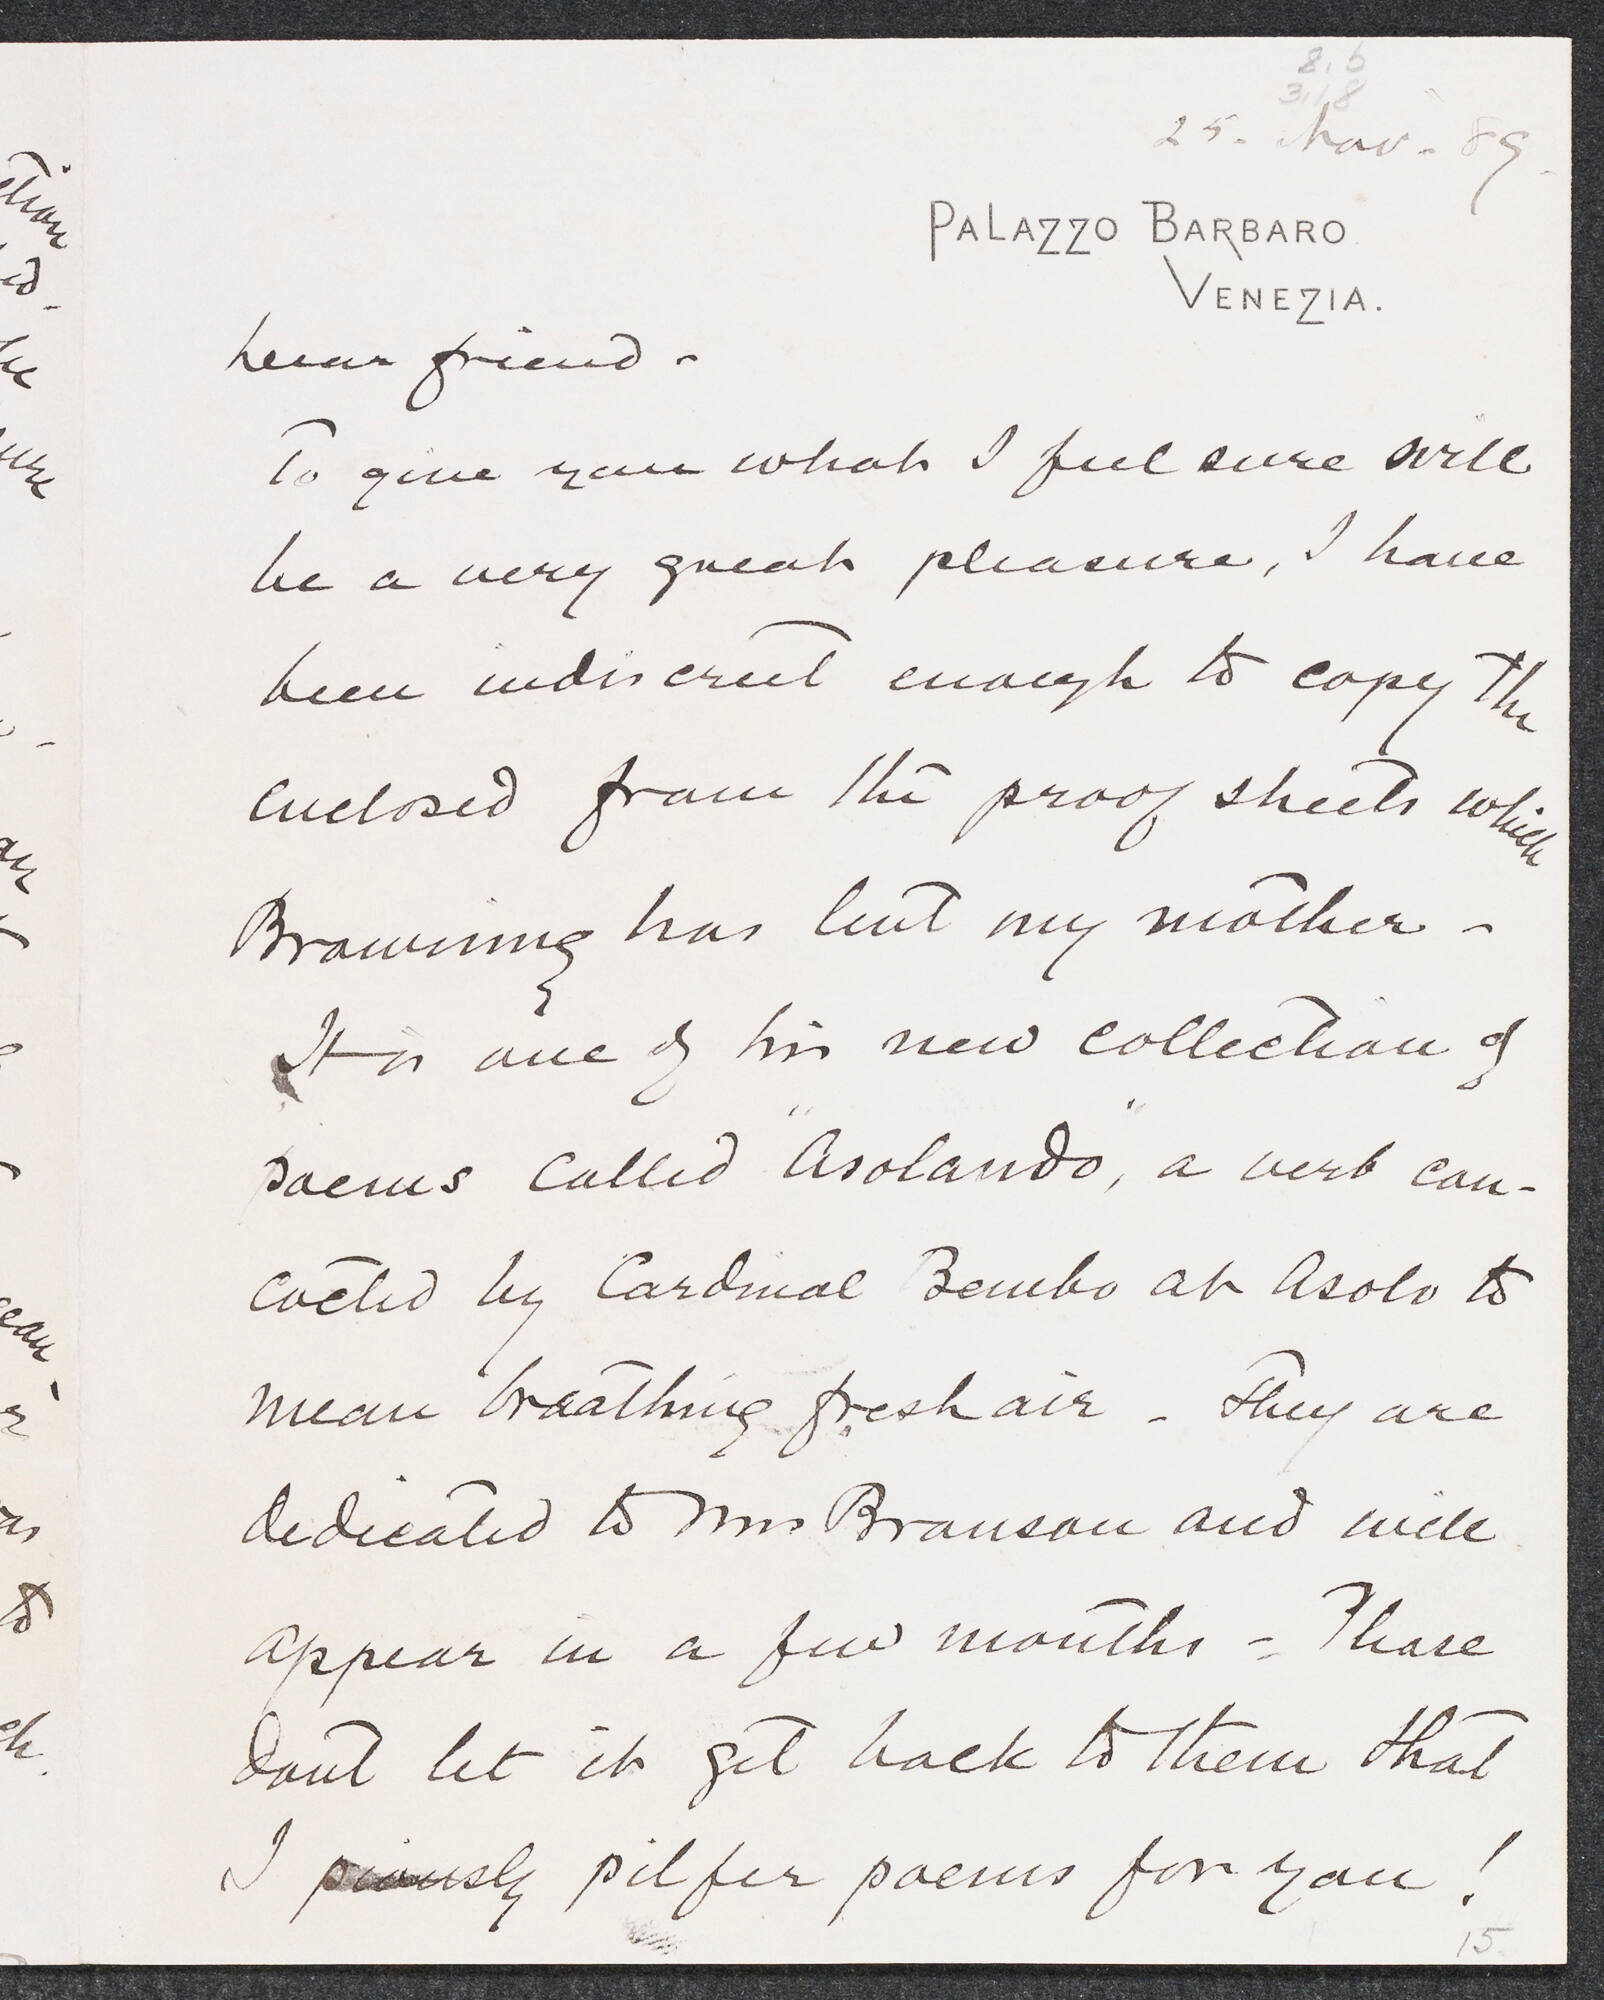 8.5
3.18
25. Nov. 89.
PALAZZO BARBARO
VENEZIA.
Dear friend -
To give you what I feel sure will
be a very great pleasure, I have
been indiscreet enough to copy the
enclosed from the proof sheets which
Browning has lent my mother -
It is one of his new collection of
poems called "Asolando", a verb con-
cocted by Cardinal Bembo at Asolo to
mean breathing fresh air - They are
dedicated to Mrs Bronson and will
appear in a few months - Please
dont let it get back to them that
I piously pilfer poems for you!
15